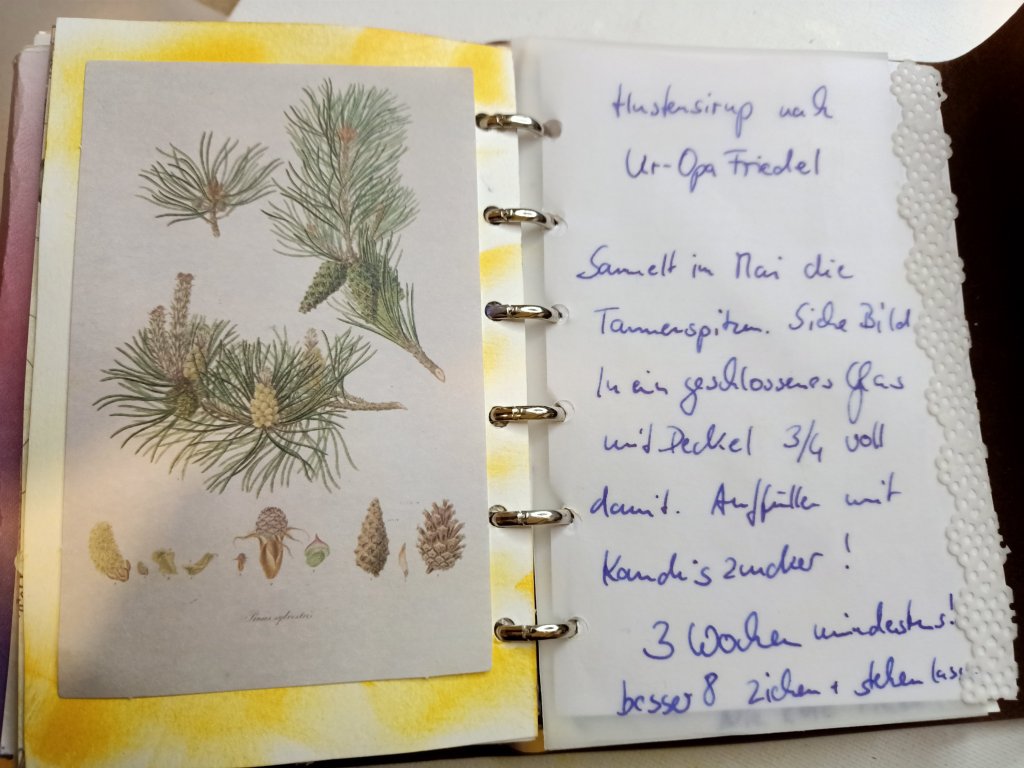 Pinus sylvestris
Hustensirup nach
Ur-Opa Friedel
Sammelt im Mai die
Tannenspitzen. Siehe Bild
In ein geschlossenes Glas
mit Deckel 3/4 voll
damit. Auffüllen mit
Kandiszucker!
3 Wochen mindestens!
besser 8 ziehen + stehen lass